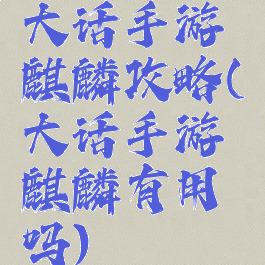 大话手游
麒麟攻略(
大话手游
麒麟有用
吗)